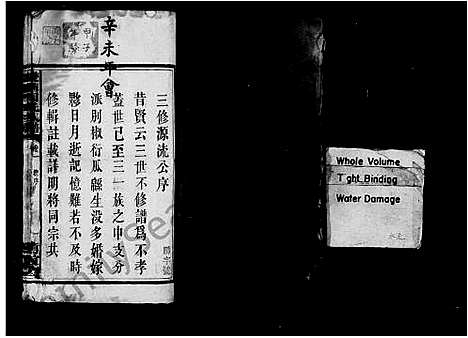 辛未年會
三修源流公序
昔賢云三世不修譜爲不孝
蓋世已至三一族之中支分
派別椒衍瓜緜生没多婚嫁
夥日月逝記憶難若不及時
修輯註載詳明將同宗共
Whole Volume
Tight Binding
Water Damage